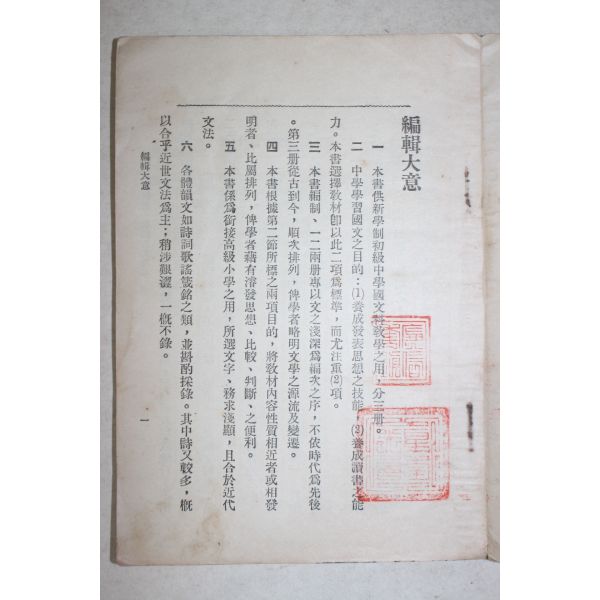 編輯大意
一　本書供新學制初級中學國文科教學之用，分三册。
二　中學學習國文之目的：(1)養成發表思想之技能　(2)養成讀書之能
力。本書選擇教材卽以此二項爲標準，而尤注重(2)項。
三　本書編制、一二兩册專以文之淺深爲編次之序，不依時代爲先後
。第三册從古到今，順次排列，俾學者略明文學之源流及變遷。
四　本書根據第二節所標之兩項目的，將教材內容性質相近者或相發
明者、比屬排列，俾學者藉有濬發思想、比較、判斷、之便利。
五　本書係爲銜接高級小學之用，所選文字、務求淺顯，且合於近代
文法。
六　各體韻文如詩詞歌謠箴銘之類，並斟酌採錄。其中詩又較多，槪
以合乎近世文法爲主；稍涉艱澀，一槪不錄。
編輯大意
一